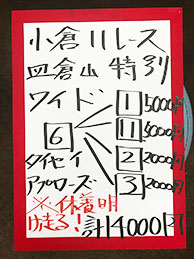 小倉11レース
皿倉山特別
ワイド
6
1 5000円
11 5000円
2 2000円
3 2000円
タイセイ
アプローズ
※休養明
け走る！
計14000円